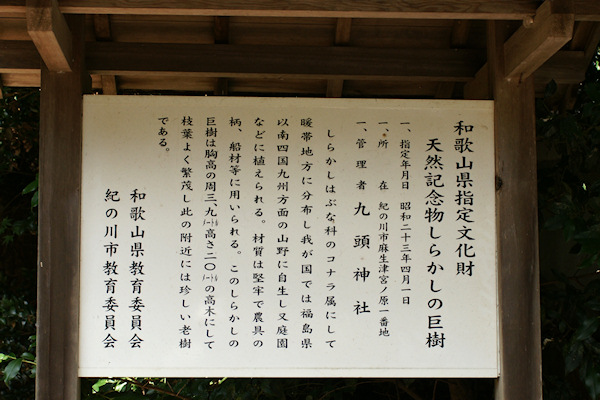 和歌山県指定文化財
天然記念物しらかしの巨樹
一、指定年月日 昭和二十三年四月一日
一、所在 紀の川市麻生津宮ノ原一番地
一、管理者 九頭神社
しらかしはぶな科のコナラ属にして
暖帯地方に分布し我が国では福島県
以南四国九州方面の山野に自生し又庭園
などに植えられる。材質は堅牢で農具の
柄、船材等に用いられる。このしらかしの
巨樹は胸高の周三、九メートル高さ二〇メートルの高木にして
枝葉よく繁茂し此の附近には珍しい老樹
である。
和歌山県教育委員会
紀の川市教育委員会